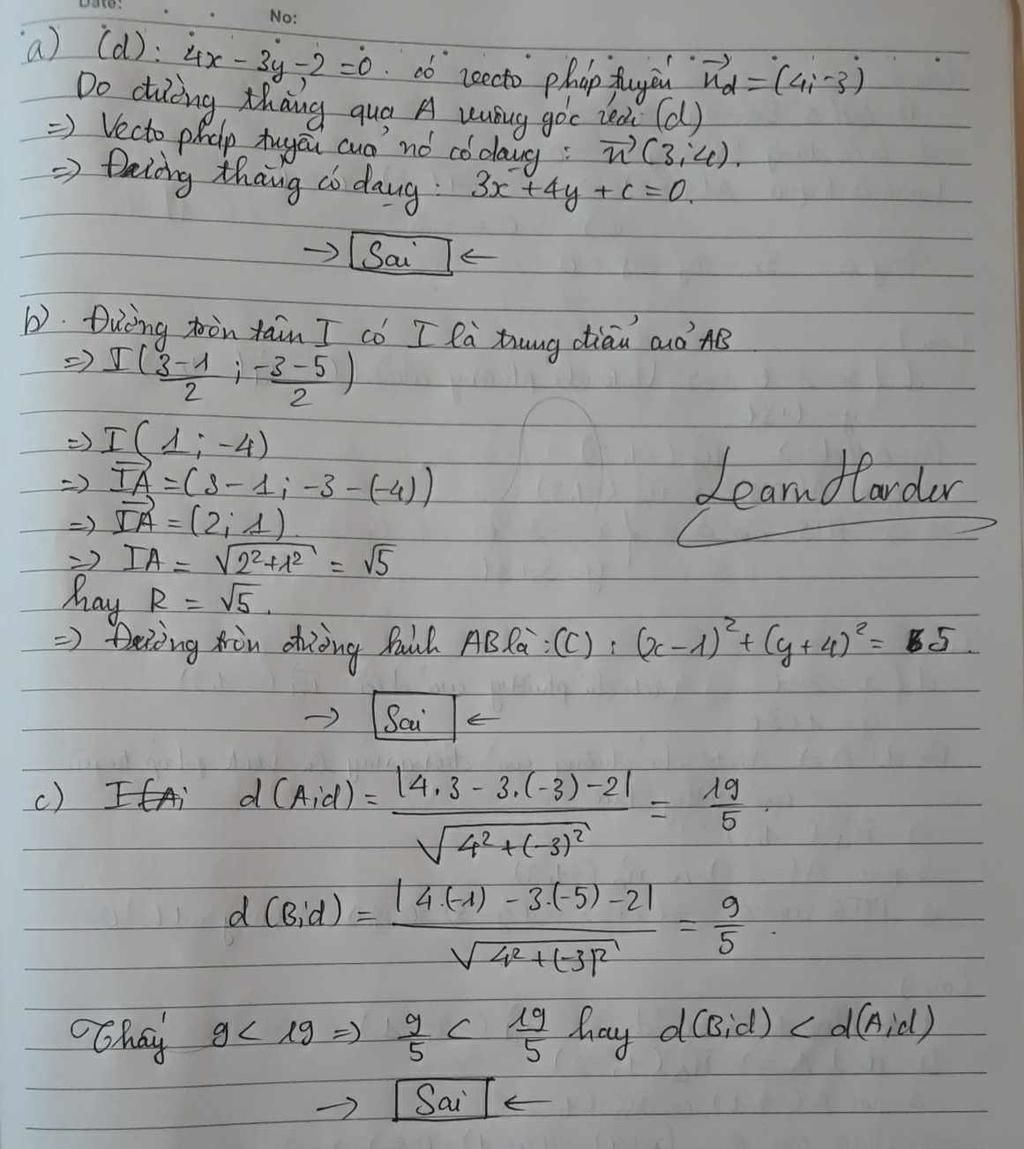 Date: No:
a) (d): 4x - 3y - 2 = 0. có vecto pháp tuyến n⃗d = (4; -3)
Do đường thẳng qua A vuông góc với (d)
=> Vecto pháp tuyến của nó có dạng : n⃗ (3; 4).
=> Đường thẳng có dạng : 3x + 4y + c = 0.
→ Sai ←
b). Đường tròn tâm I có I là trung điểm của AB
=> I(3-1/2 ; -3-5/2)
=> I(1; -4)
=> IA⃗ = (3-1; -3-(-4))
LearnHarder
=> IA⃗ = (2; 1)
=> IA = √(2²+1²) = √5
hay R = √5.
=> Đường tròn đường kính AB là : (C) : (x-1)² + (y+4)² = 5.
→ Sai ←
c) d(A;d) = |4.3 - 3.(-3) - 2| / √(4²+(-3)²) = 19/5.
d(B;d) = |4.(-1) - 3.(-5) - 2| / √(4²+(-3)²) = 9/5.
Thấy 9 < 19 => 9/5 < 19/5 hay d(B;d) < d(A;d)
→ Sai ←